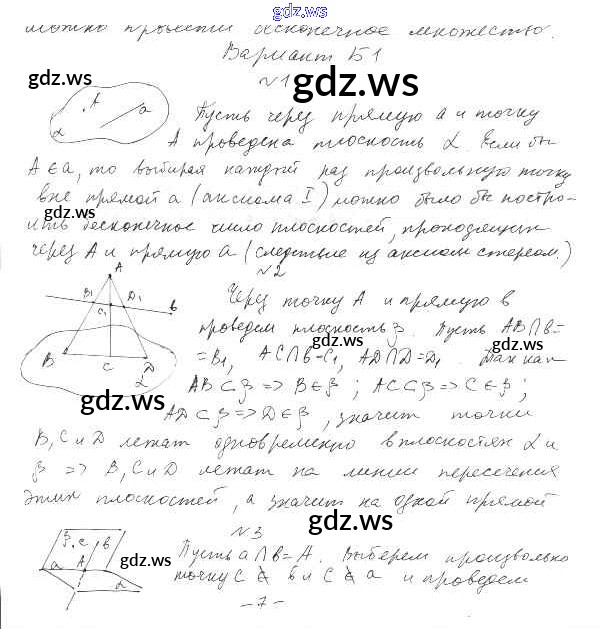 gdz.ws
можно провести бесконечное множество.
Вариант Б1
№1
gdz.ws
gdz.ws
A a α
Пусть через прямую a и точку
A проведена плоскость α. Если бы
A ∈ a, то выбирая каждый раз произвольную точку
вне прямой a (аксиома I) можно было бы постро-
gdz.ws
ить бесконечное число плоскостей, проходящих
через A и прямую a (следствие из аксиом стереом.)
№2
A B1 C1 D1 b B C D α
Через точку A и прямую b
проведем плоскость β. Пусть AB∩b=
=B1, AC∩b=C1, AD∩D=D1. Так как
AB⊂β=>B∈β; AC⊂β=>C∈β;
gdz.ws
AD⊂β=>D∈β, значит точки
B, C и D лежат одновременно в плоскостях α и
β => B, C и D лежат на линии пересечения
этих плоскостей, а значит на одной прямой
gdz.ws
№3
β c b a A α
gdz.ws
Пусть a∩b=A. Выберем произвольно
точку C ∉ b и C ∉ a и проведем
-7-
gdz.ws